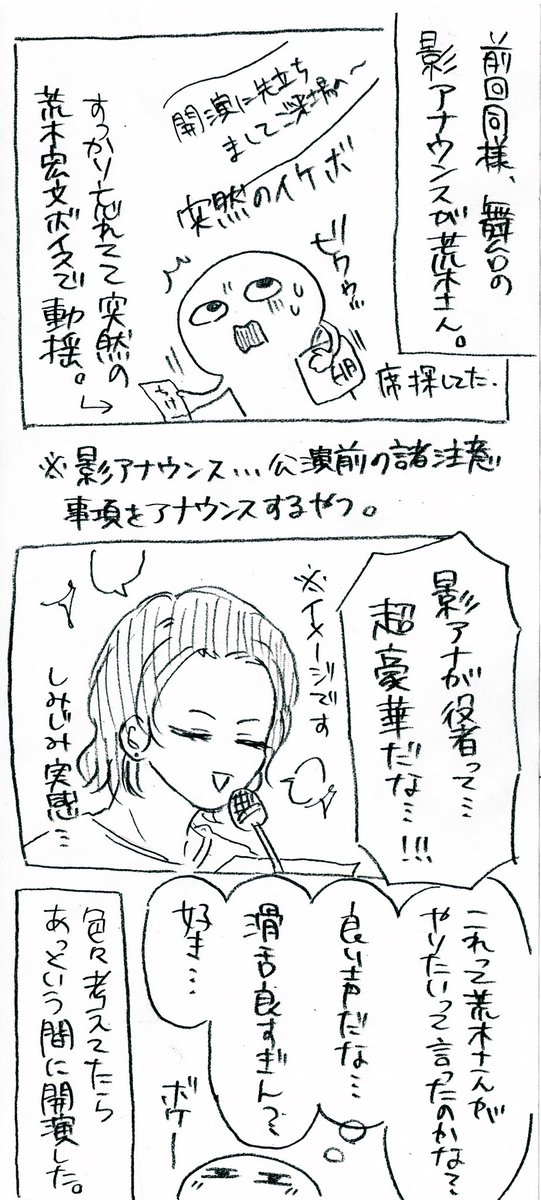 前回同様、舞台の
影アナウンスが荒木さん。
開演に先立ち
ましてご来場の〜
突然のイケボ
ビクゥッ
席探してた.
すっかり忘れてて突然の
荒木宏文ボイスで動揺。
※影アナウンス…公演前の諸注意
事項をアナウンスするやつ。
影アナが役者って…
超豪華だな…!!!
※イメージです
しみじみ実感…
これって荒木さんが
やりたいって言ったのかな?
良い声だな…
滑舌良すぎんつ…
好き…
ボケー
色々考えてたら
あっという間に開演した。